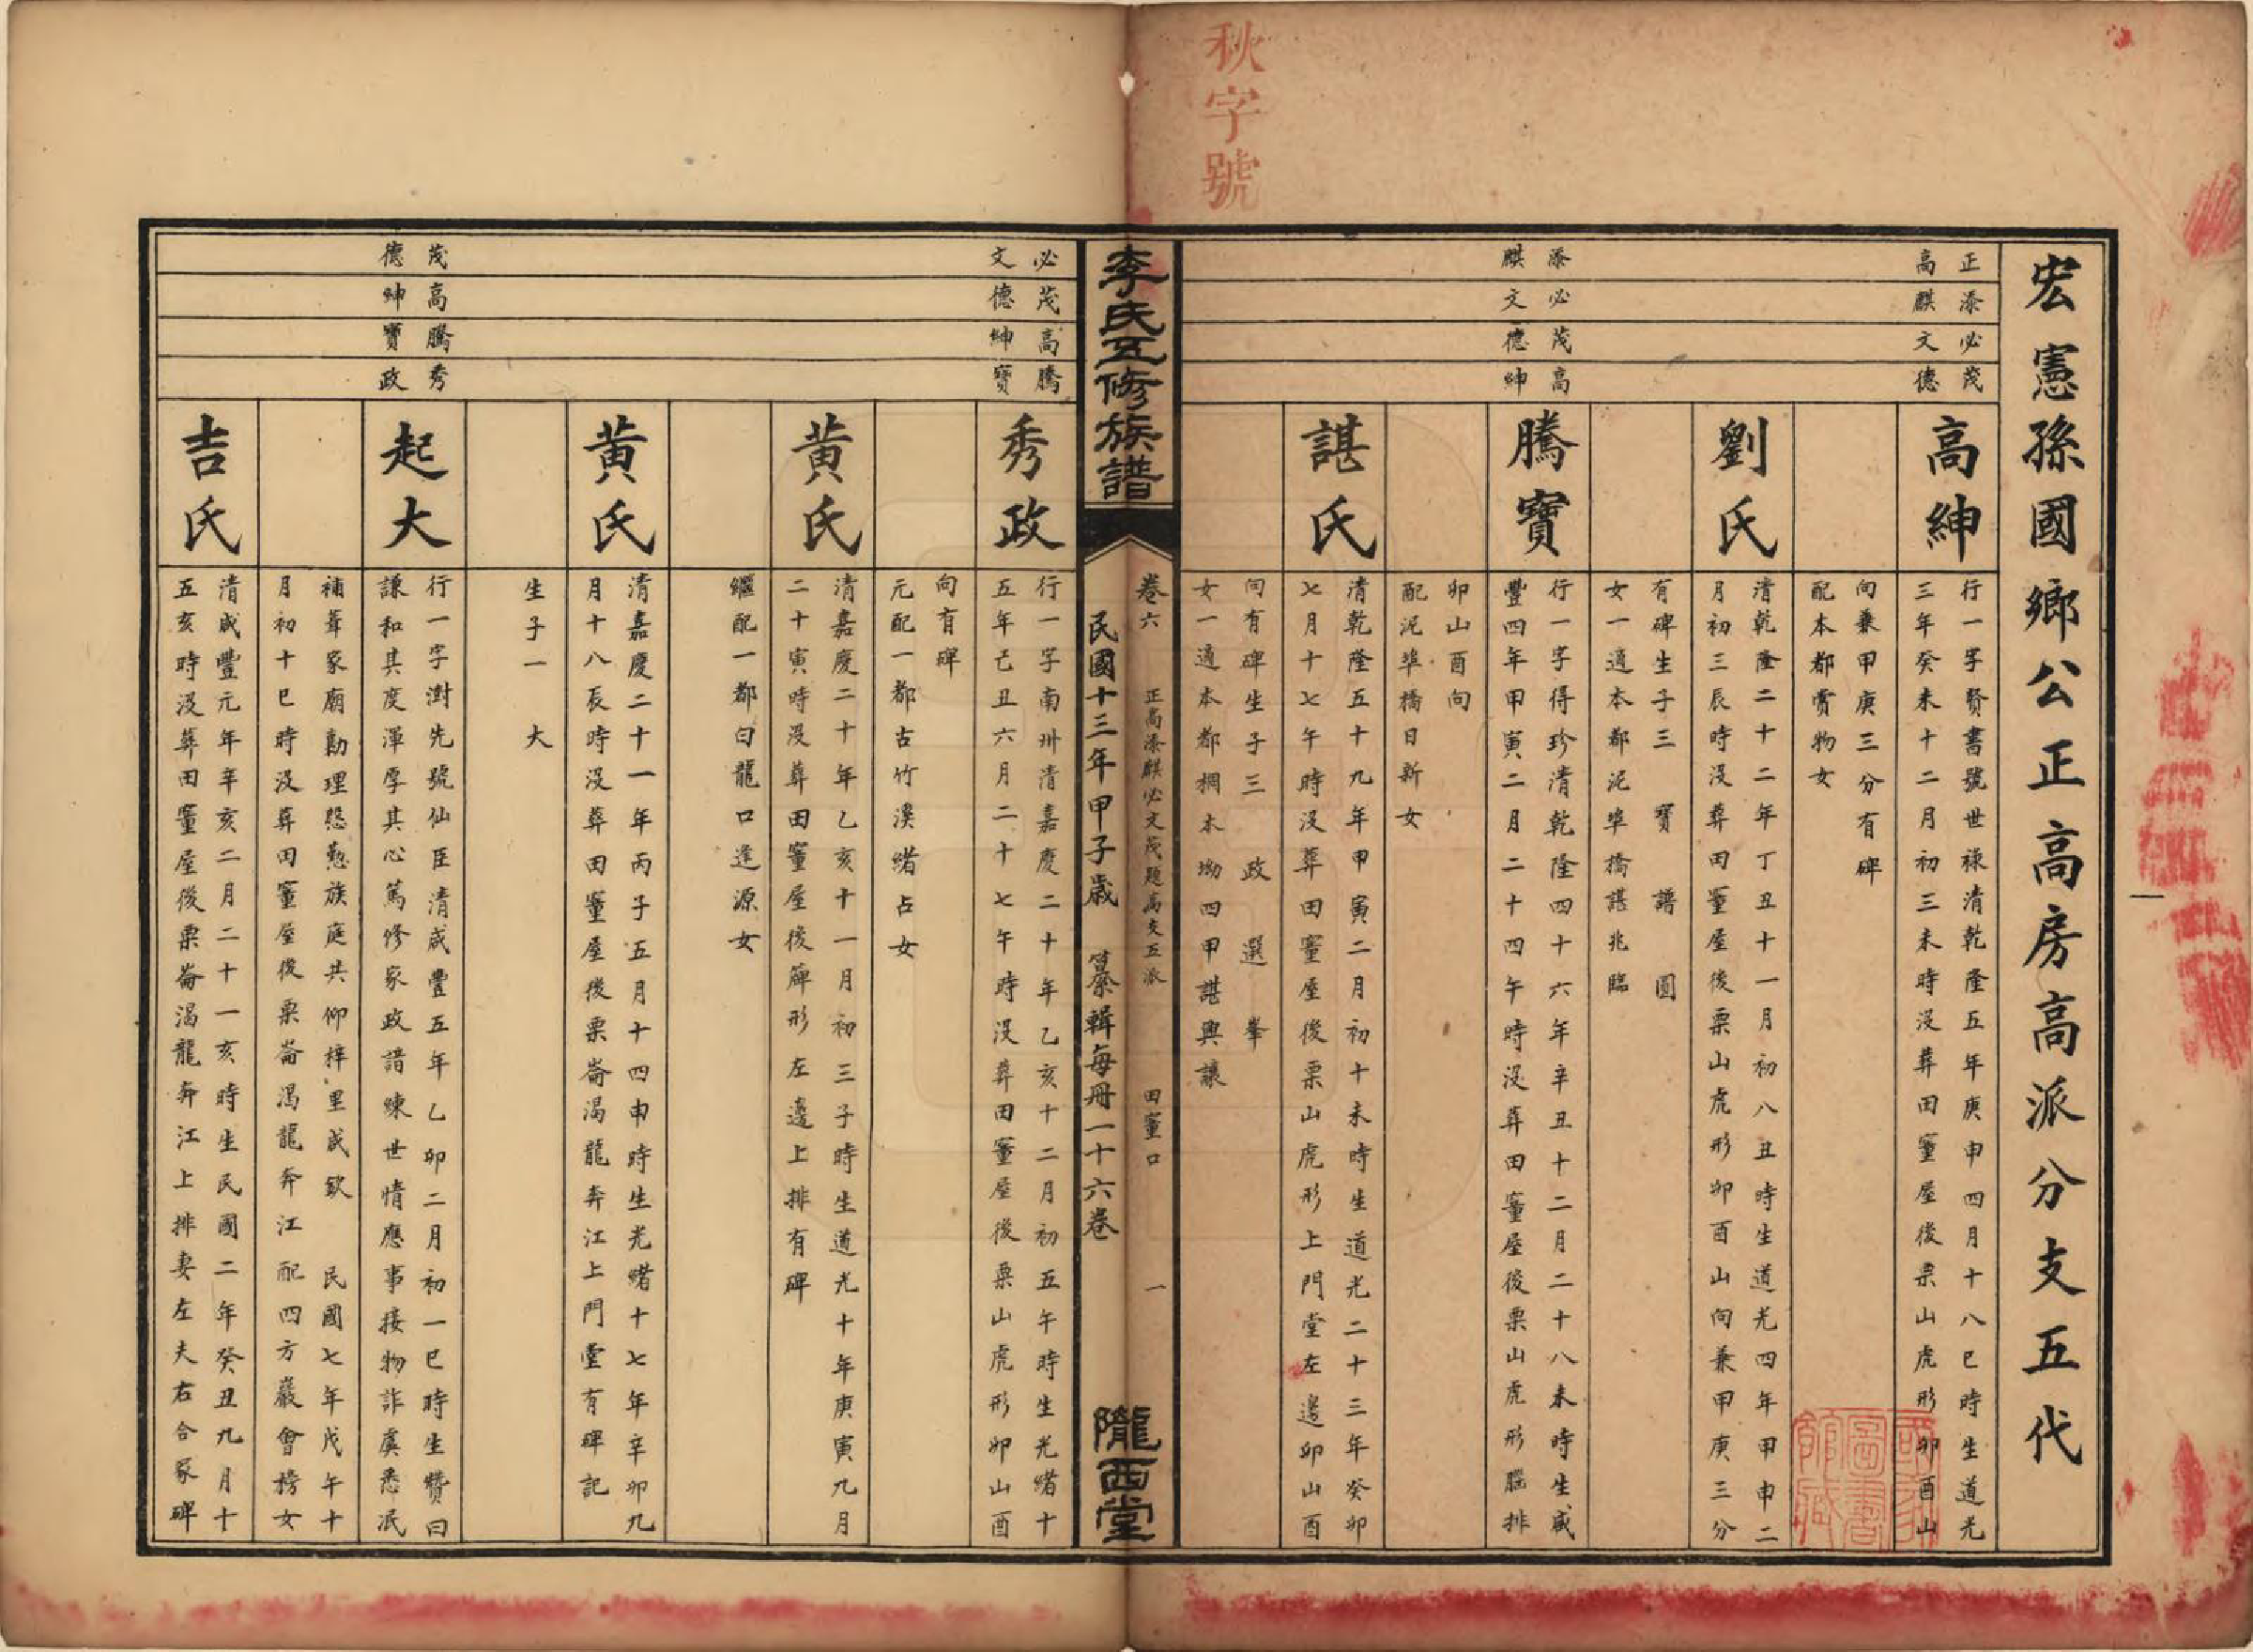 秋字號
宏憲孫國鄉公正高房高派分支五代
正高
添麒
必文
茂德
高紳
行一字賢書號世祿清乾隆五年庚申四月十八巳時生道光
三年癸未十二月初三未時沒葬田𡫏屋後栗山虎形卯酉山
向兼甲庚三分有碑
配本都賞物女
劉氏
清乾隆二十二年丁丑十一月初八丑時生道光四年甲申二
月初三辰時沒葬田𡫏屋後栗山虎形卯酉山向兼甲庚三分
有碑生子三 寶 譜 圓
女一適本都泥埠橋諶兆臨
添麒
必文
茂德
高紳
騰寶
行一字得珍清乾隆四十六年辛丑十二月二十八未時生咸
豐四年甲寅二月二十四午時沒葬田𡫏屋後栗山虎形腦排
卯山酉向
配泥埠橋日新女
諶氏
清乾隆五十九年甲寅二月初十未時生道光二十三年癸卯
七月十七午時沒葬田𡫏屋後栗山虎形上門堂左邊卯山酉
向有碑生子三 政 選 峯
女一適本都棡木坳四甲諶興讓
李氏五修族譜
卷六 正高添麒必文茂題高支五派 田𡫏口 一
民國十三年甲子歲 纂輯每冊一十六卷
隴西堂
必文
茂德
高紳
騰寶
秀政
行一字南卅清嘉慶二十年乙亥十二月初五午時生光緒十
五年己丑六月二十七午時沒葬田𡫏屋後栗山虎形卯山酉
向有碑
元配一都古竹溪緒占女
黃氏
清嘉慶二十年乙亥十一月初三子時生道光十年庚寅九月
二十寅時沒葬田𡫏屋後䉡形左邊上排有碑
繼配一都白龍口逢源女
黃氏
清嘉慶二十一年丙子五月十四申時生光緒十七年辛卯九
月十八辰時沒葬田𡫏屋後栗崙渴龍奔江上門堂有碑記
生子一 大
茂德
高紳
騰寶
秀政
起大
行一字澍先號仙臣清咸豐五年乙卯二月初一巳時生贊曰
謙和其度渾厚其心篤修家政諳練世情應事接物詐虞悉泯
補葺家廟勷理慇懃族庭共仰梓里咸欽 民國七年戊午十
月初十巳時沒葬田𡫏屋後栗崙渴龍奔江 配四方巖會榜女
吉氏
清咸豐元年辛亥二月二十一亥時生民國二年癸丑九月十
五亥時沒葬田𡫏屋後栗崙渴龍奔江上排妻左夫右合冢碑
一
國家圖書館藏